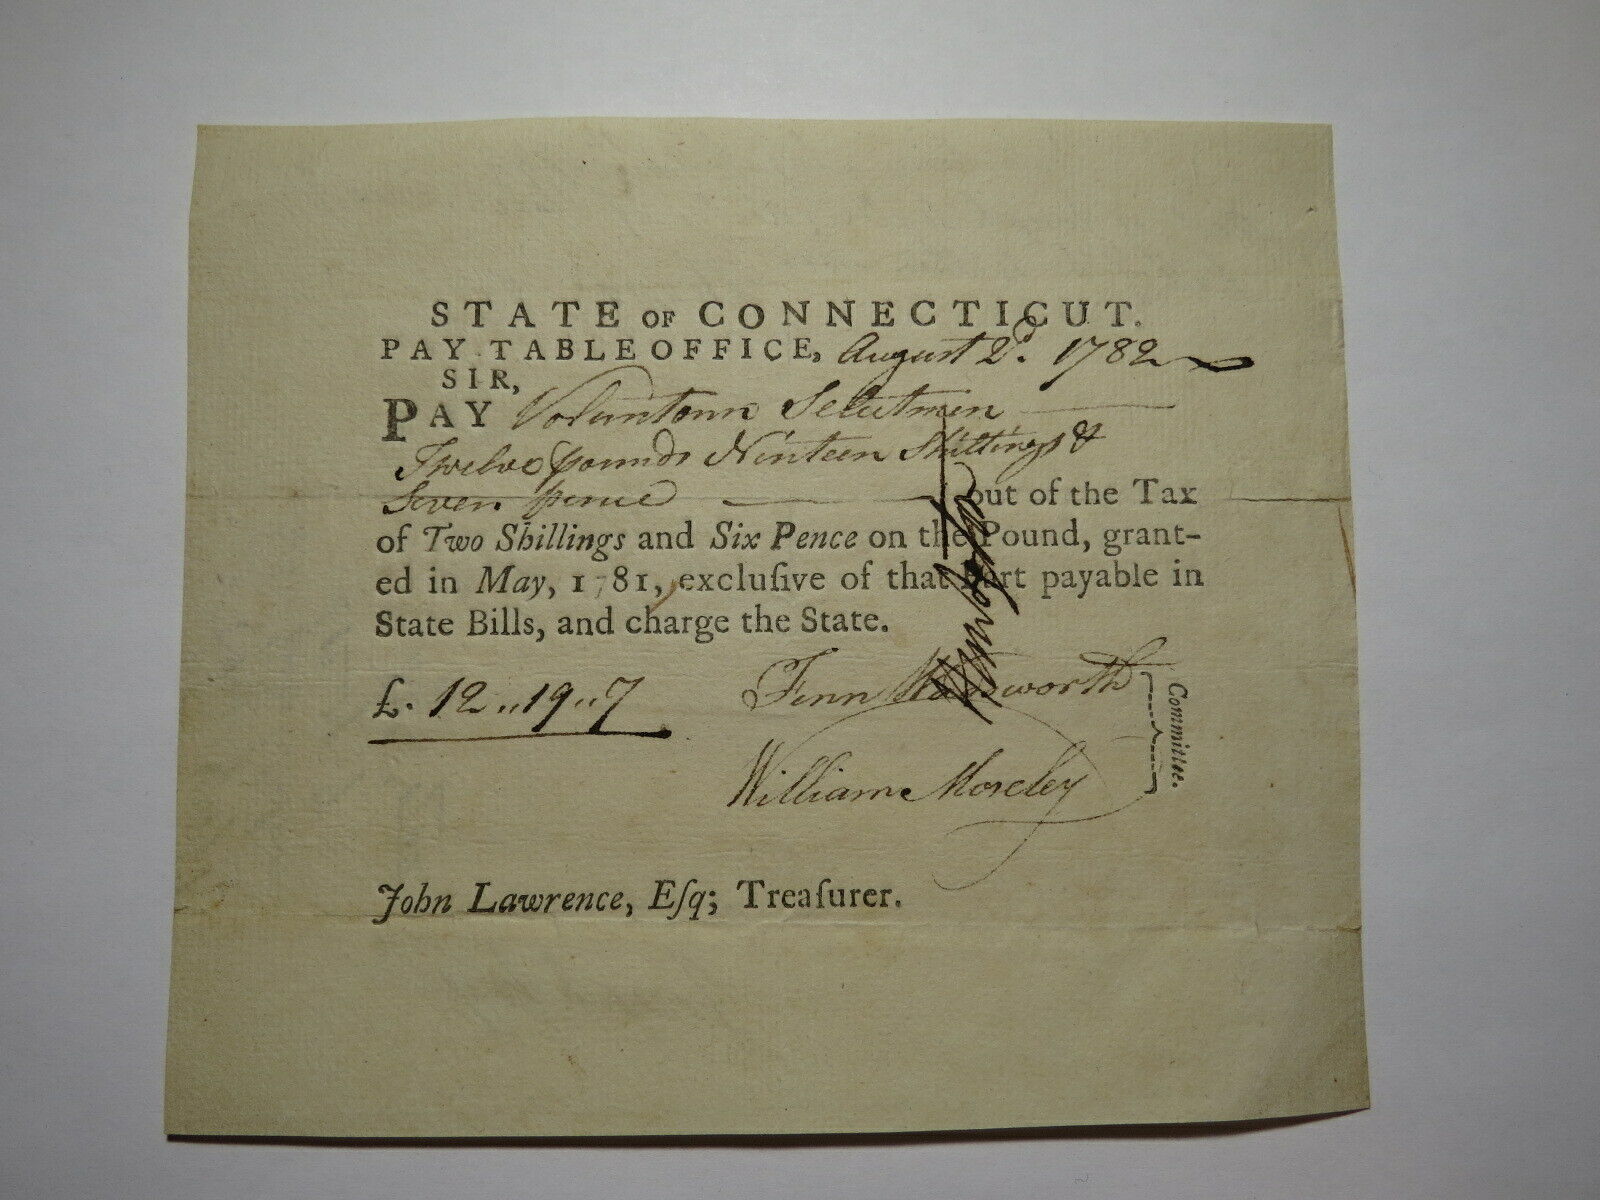 STATE OF CONNECTICUT.
PAY-TABLE OFFICE, August 2d. 1782
SIR,
PAY Voluntown Selectmen
Twelve pounds Ninteen Shillings &
Seven pence out of the Tax
of Two Shillings and Six Pence on the Pound, grant-
ed in May, 1781, excluſive of that Part payable in
State Bills, and charge the State.
£. 12 ,, 19 ,, 7
Fenn Wadsworth
William Moseley
Committee.
John Lawrence, Eſq; Treaſurer.